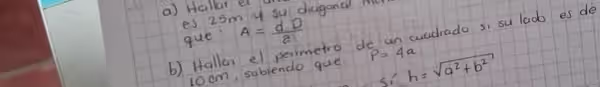 a) Hallar el
es 25m y su diagonal
que: A = d.D / 2
b) Hallar el perimetro de un cuadrado si su lado es de
10cm, sabiendo que P= 4a
si h = √a²+b²